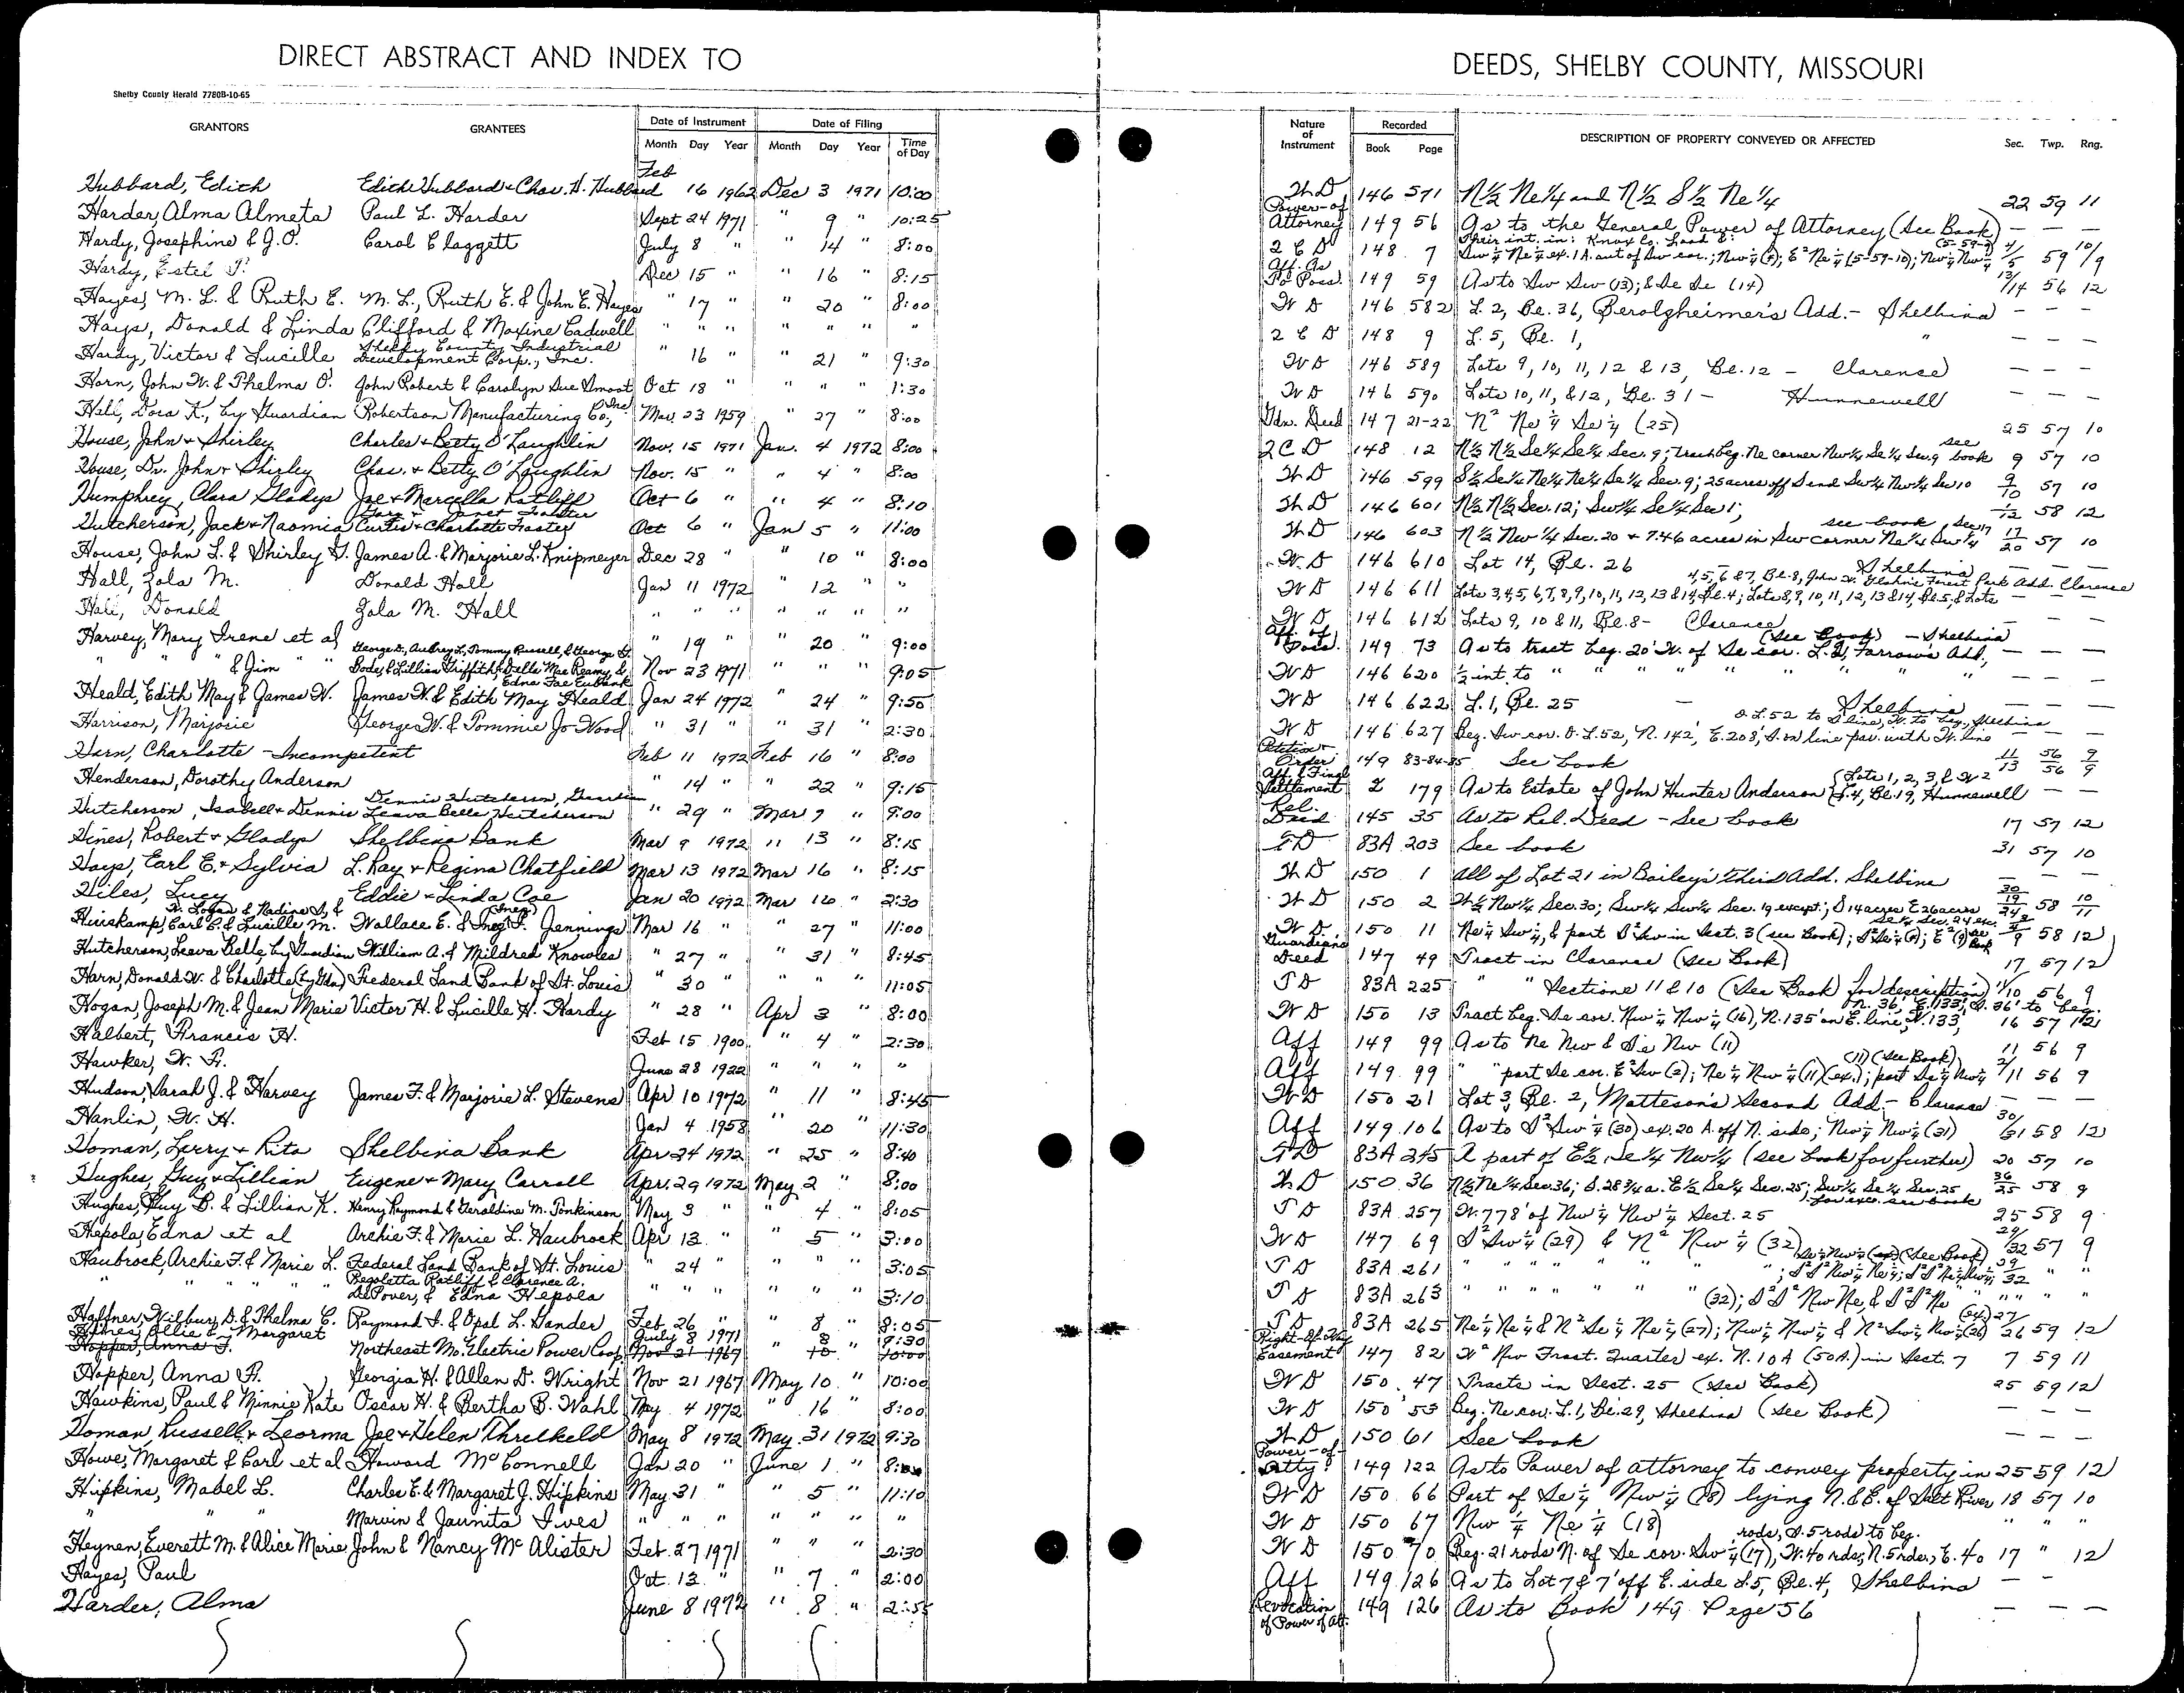 DIRECT ABSTRACT AND INDEX TO
DEEDS, SHELBY COUNTY, MISSOURI
Shelby County Herald 7780B-10-65
GRANTORS GRANTEES Date of Instrument Date of Filing
Month Day Year Month Day Year Time of Day
Nature of Instrument Recorded DESCRIPTION OF PROPERTY CONVEYED OR AFFECTED Sec. Twp. Rng.
Book Page
Hubbard, Edith Edith Hubbard + Chas. H. Hubbard Feb 16 1962 Dec 3 1971 10:00 W D 146 571 N½ Ne¼ and N½ S½ Ne¼ 22 59 11
Harder, Alma Almeta Paul L. Harder Sept 24 1971 " 9 " 10:25 Power-of Attorney 149 56 As to the General Power of Attorney (See Book) — — —
Hardy, Josephine & J.O. Carol Claggett July 8 " " 14 " 8:00 2 C D 148 7 Their int. in: Knox Co. Land & Sw¼ Ne¼ ex. 1A. out of Sw cor.; (5-59-10); Nw¼ Nw¼ (5-59-9) 4/5 59 10/9
Hardy, Estel T. Dec 15 " " 16 " 8:15 Aff. As To Poss. 149 59 As to Sw Sw (13); & Se Se (14) 13/14 56 12
Hayes, M. L. & Ruth E. M. L., Ruth E. & John E. Hayes " 17 " " 20 " 8:00 W D 146 582 L. 2, Bl. 36, Berolzheimer's Add.- Shelbina — — —
Hays, Donald & Linda Clifford & Maxine Cadwell " " " " " " " 2 C D 148 9 L. 5, Bl. 1, " — — —
Hardy, Victor & Lucille Shelby County Industrial Development Corp., Inc. " 16 " " 21 " 9:30 W D 146 589 Lots 9, 10, 11, 12 & 13, Bl. 12 - Clarence — — —
Horn, John W. & Thelma O. John Robert & Carolyn Sue Smoot Oct 18 " " " " 1:30 W D 146 590 Lots 10, 11, & 12, Bl. 31 - Hunnewell — — —
Hall, Dora K., by Guardian Robertson Manufacturing Co., Inc. Mar. 23 1959 " 27 " 8:00 Gdn. Deed 147 21-22 N² Ne¼ Se¼ (25) 25 57 10
House, John + Shirley Charles + Betty O'Laughlin Nov. 15 1971 Jan. 4 1972 8:00 2 C D 148 12 N½ N½ Se¼ Se¼ Sec. 9; tract beg. Ne corner Nw¼ Se¼ Sec. 9 see book 9 57 10
House, Dr. John + Shirley Chas. + Betty O'Laughlin Nov. 15 " " 4 " 8:00 W D 146 599 S½ Se¼ Ne¼ Ne¼ Se¼ Sec. 9; 25 acres off S end Sw¼ Nw¼ Sec 10 9/10 57 10
Humphrey, Clara Gladys Joe + Marcella Ratliff Oct 6 " " 4 " 8:10 W D 146 601 N½ N½ Sec. 12; Sw¼ Se¼ Sec 1; 1/12 58 12
Hutcherson, Jack + Naomia Gary + Janet Foster Curtis + Charlotte Foster Oct 6 " Jan 5 " 11:00 W D 146 603 N½ Nw¼ Sec. 20 + 7.46 acres in Sw corner Ne¼ Sw¼ Sec 17 see book 17/20 57 10
House, John L. & Shirley G. James A. & Marjorie L. Knipmeyer Dec 28 " " 10 " 8:00 W. D 146 610 Lot 14, Bl. 26 Shelbina — — —
Hall, Zola M. Donald Hall Jan 11 1972 " 12 " " W D 146 611 Lots 3,4,5,6,7,8,9,10,11,12,13 & 14, Bl. 4; Lots 8,9,10,11,12,13 & 14, Bl. 5, & Lots 4,5,6 & 7, Bl. 8, John W. Forest Park Add. Clarence — — —
Hall, Donald Zola M. Hall " " " " " " " W D 146 612 Lots 9, 10 & 11, Bl. 8- Clarence — — —
Harvey, Mary Irene et al " 19 " " 20 " 9:00 Aff. of Poss. 149 73 As to tract beg. 20' W. of Se cor. L. 21, Farrow's Add., (See Book) - Shelbina — — —
" " & Jim " " George D., Aubrey L., Tommy Russell, & George Body, & Lillian Griffith, & Della Mae Reamy, & Edna Fae Eubank Nov 23 1971 " " " 9:05 W D 146 620 ½ int. to " " " " " " — — —
Heald, Edith May & James W. James W. & Edith May Heald Jan 24 1972 " 24 " 9:50 W D 146 622 L. 1, Bl. 25 - Shelbina — — —
Harrison, Marjorie George W. & Tommie Jo Wood " 31 " " 31 2:30 W D 146 627 Beg. Sw cor. O.L. 52, N. 142', E. 208', S. on line par. with W. line O.L. 52 to S line, W. to beg., Shelbina — — —
Harn, Charlotte - Incompetent Feb 11 1972 Feb 16 " 8:00 Petition + Order 149 83-84-85 See book 11/13 56/56 9/9
Henderson, Dorothy Anderson " 14 " " 22 " 9:15 Aff. & Final Settlement 2 179 As to Estate of John Hunter Anderson (Lots 1, 2, 3, & W2 L. 4, Bl. 19, Hunnewell — —
Hutcherson, Isabell + Dennis Dennis Hutcherson, Guardian Leava Belle Hutcherson " 29 " Mar 7 " 9:00 Rel. Deed 145 35 As to Rel. Deed - See book 17 57 12
Hines, Robert + Gladys Shelbina Bank Mar 9 1972 " 13 " 8:15 T D 83A 203 See book 31 57 10
Hays, Earl E. + Sylvia L. Ray + Regina Chatfield Mar 13 1972 Mar 16 " 8:15 W D 150 1 All of Lot 21 in Bailey's third Add. Shelbina — — —
Hiles, Lucy Eddie + Linda Coe Jan 20 1972 Mar 16 " 2:30 W D 150 2 W½ Nw¼ Sec. 30; Sw¼ Sw¼ Sec. 19 except; S 14 acres E 26 acres Se¼ Sec. 24 30/19/24 58 10/11
Hinskamp, Carl C. & Lucille M. W. Logan & Nadine S. & Wallace E. & Inez F. (Inez) Jennings Mar 16 " " 27 " 11:00 W. D. 150 11 Ne¼ Sw¼, & part S² Sw in Sect. 3 (see Book); 58 12
Hutcherson, Leava Belle, by Guardian William A. & Mildred Knowles " 27 " " 31 " 8:45 Guardian's Deed 147 49 Tract in Clarence (See Book) 17 57 12
Harn, Donald W. & Charlotte (by Gdn) Federal Land Bank of St. Louis " 30 " " " " 11:05 T D 83A 225 " " Sections 11 & 10 (See Book) for description 11/10 56 9
Hogan, Joseph M. & Jean Marie Victor H. & Lucille H. Hardy " 28 " Apr 3 " 8:00 W D 150 13 Tract beg. Se cor. Nw¼ Nw¼ (16), N. 135' on E. line, W. 133, N. 36', E. 133', S. 36' to beg. 16 57 12
Halbert, Francis H. Feb 15 1900 " 4 " 2:30 Aff 149 99 As to Ne Nw & Se Nw (11) 11 56 9
Hawker, W. F. June 28 1922 " " " " Aff 149 99 " " part Se cor. E² Sw (2); Ne¼ Nw¼ (11) (ex.); part Se¼ Nw¼ (11) (See Book) 2/11 56 9
Hudson, Sarah J. & Harvey James F. & Marjorie L. Stevens Apr 10 1972 " 11 " 8:45 W D 150 21 Lot 3, Bl. 2, Matteson's Second Add.- Clarence — — —
Hanlin, W. H. Jan 4 1958 " 20 " 11:30 Aff 149 106 As to S² Sw¼ (30) ex. 20 A. off N. side; Nw¼ Nw¼ (31) 30/31 58 12
Homan, Lerry + Rita Shelbina Bank Apr 24 1972 " 25 " 8:40 T D 83A 245 A part of E½, Se¼ Nw¼ (see book for further) 20 57 10
Hughes, Guy + Lillian Eugene + Mary Carroll Apr. 29 1972 May 2 " 8:00 W D 150 36 N½ Ne¼ Sec. 36; S. 28¾ a. E½ Se¼ Sec. 25; Sw¼ Se¼ Sec. 25 for exc. see book 36/25 58 9
Hughes, Guy B. & Lillian K. Henry Raymond & Geraldine M. Tonkinson May 3 " " 4 " 8:05 T D 83A 257 W. 778' of Nw¼ Nw¼ Sect. 25 25 58 9
Hepola, Edna et al Archie F. & Marie L. Haubrock Apr 13 " " 5 " 3:00 W D 147 69 S² Sw¼ (29) & N² Nw¼ (32) 29/32 57 9
Haubrock, Archie F. & Marie L. Federal Land Bank of St. Louis " 24 " " " " 3:05 T D 83A 261 " " " " " " " (See Book) " "
" " " " " Regoletta Ratliff & Clarence A. DePover, & Edna Hepola " " " " " " 3:10 T D 83A 263 " " " " " " (32); S² S² Nw Ne, & S² S² Ne " " "
Haffner, Wilbur D. & Thelma C. Raymond I. & Opal L. Sander Feb 26 " " 8 " 8:05 T D 83A 265 Ne¼ Ne¼ & N² Se¼ Ne¼ (27); Nw¼ Nw¼ & N² Sw¼ Nw¼ (26) 27/26 59 12
Hines, Ollie & Margaret Northeast Mo. Electric Power Coop. July 8 1971 " 8 " 9:30 Right-Of-Way Easement 147 82 W² Nw Fract. Quarter ex. N. 10 A (50A.) in Sect. 7 7 59 11
Hopper, Anna F. Nov 21 1967 10 10:00
Hopper, Anna F. Georgia H. & Allen D. Wright Nov 21 1967 May 10 " 10:00 W D 150 47 Tracts in Sect. 25 (See Book) 25 59 12
Hawkins, Paul & Minnie Kate Oscar H. & Bertha B. Wahl May 4 1972 " 16 " 8:00 W D 150 53 Beg. Ne cor. L. 1, Bl. 29, Shelbina (See Book) — — —
Homan, Russell + Leorma Joe + Helen Threlkeld May 8 1972 May 31 1972 9:30 W D 150 61 See book — — —
Howe, Margaret & Earl et al Howard McConnell Jan 20 " June 1 " 8:00 Power-of-Atty. 149 122 As to Power of attorney to convey property in 25 59 12
Hipkins, Mabel L. Charles E. & Margaret J. Hipkins May 31 " " 5 " 11:10 W D 150 66 Part of Se¼ Nw¼ (18) lying N. & E. of Salt River 18 57 10
" " " Marvin & Jaunita Ives " " " " " " " W D 150 67 Nw¼ Ne¼ (18) " " "
Heynen, Everett M. & Alice Marie John & Nancy McAlister Feb. 27 1971 " " " 2:30 W D 150 70 Beg. 21 rods N. of Se cor. Sw¼ (17), W. 40 rds, N. 5 rds., E. 40 rods, S. 5 rods to beg. 17 " 12
Hayes, Paul Oct. 13 " " 7 " 2:00 Aff 149 126 As to Lot 7 & 7' off E. side L. 5, Bl. 4, Shelbina — —
Harder, Alma June 8 1972 " 8 " 2:55 Revocation of Power of Att. 149 126 As to Book 149 Page 56 — — —